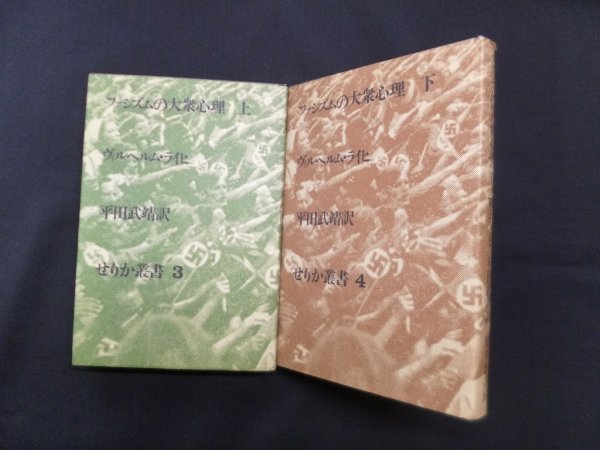 ファシズムの大衆心理 上
ヴィルヘルム・ライヒ
平田武靖訳
せりか叢書 3
ファシズムの大衆心理 下
ヴィルヘルム・ライヒ
平田武靖訳
せりか叢書 4